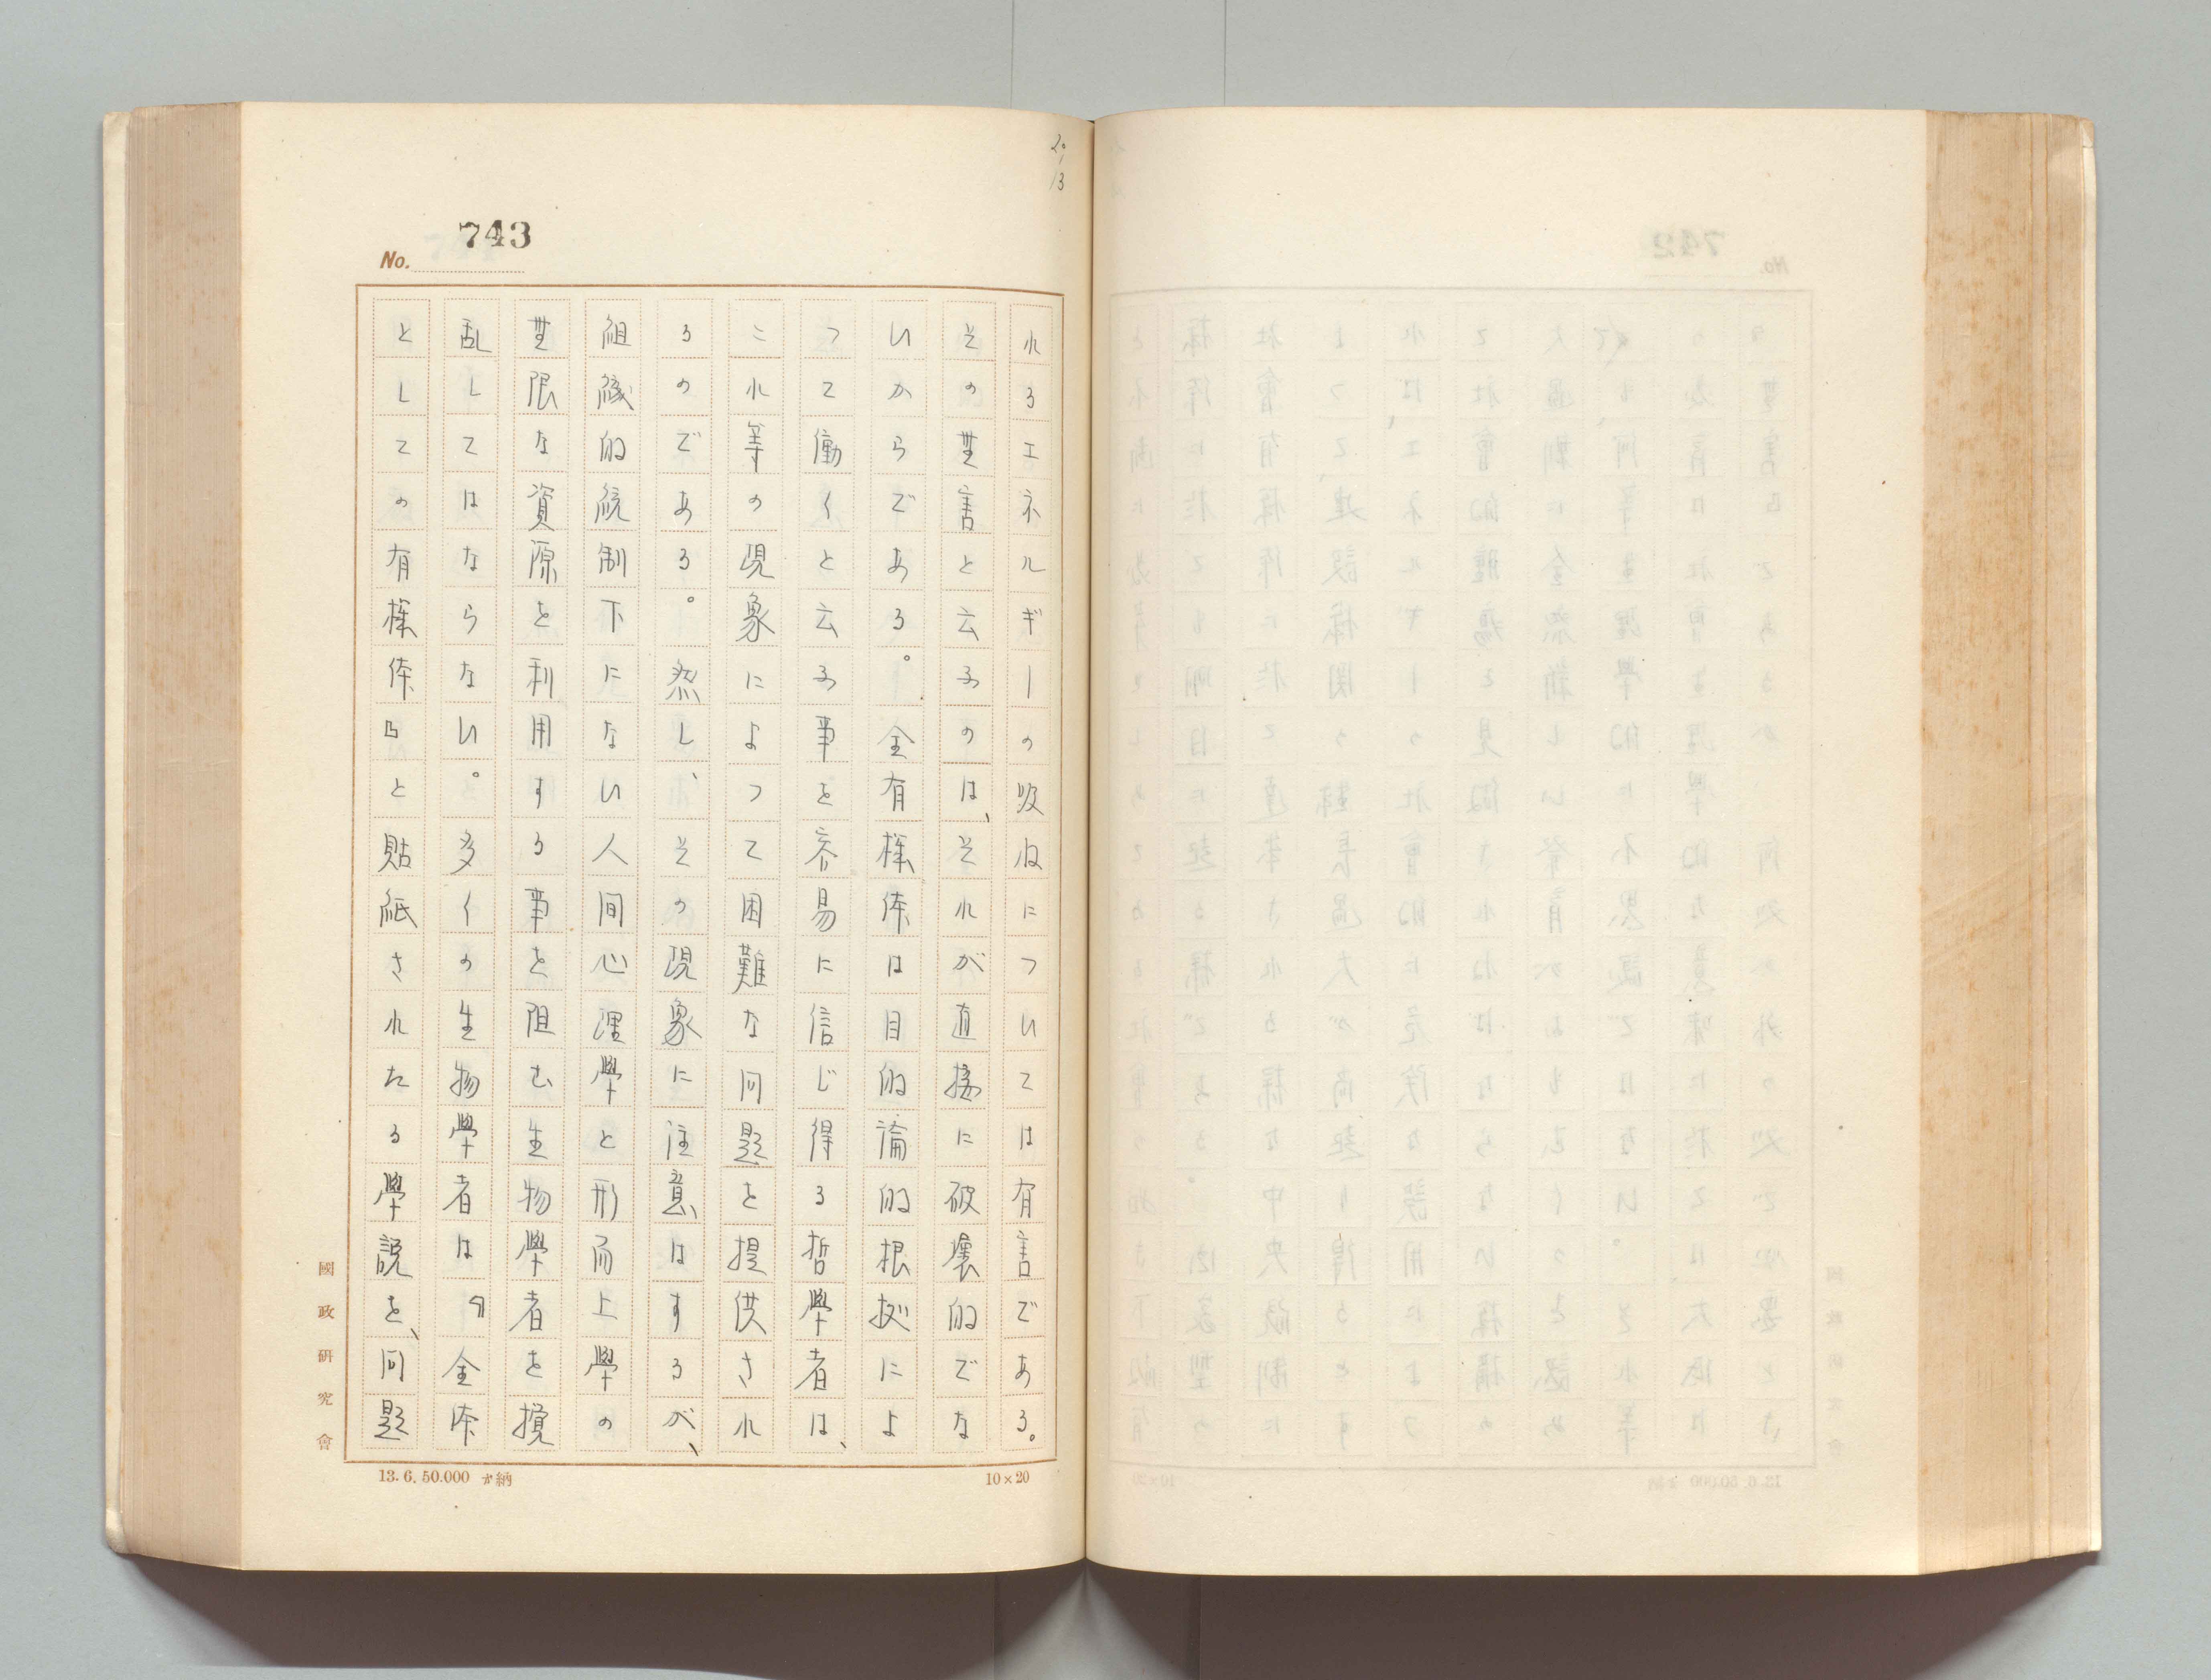 20/13
743
No.
れるエネルギーの については有害である。
その無害と云ふのは、それが直接に破壞的でな
いからである。全有機体は目的論的根拠によ
つて働くと云ふ事を容易に信じ得る哲學者は、
これ等の現象によつて困難な問題を提供され
るのである。然し、その現象に注意はするが、
組織的統制下にない人間心理學と形而上學の
無限な資源を利用する事を阻む生物學者を攪
乱してはならない。多くの生物學者は『全体
としての有機体』と貼紙されたる學説を、問題
國政研究會
13.6.50.000 納
10×20